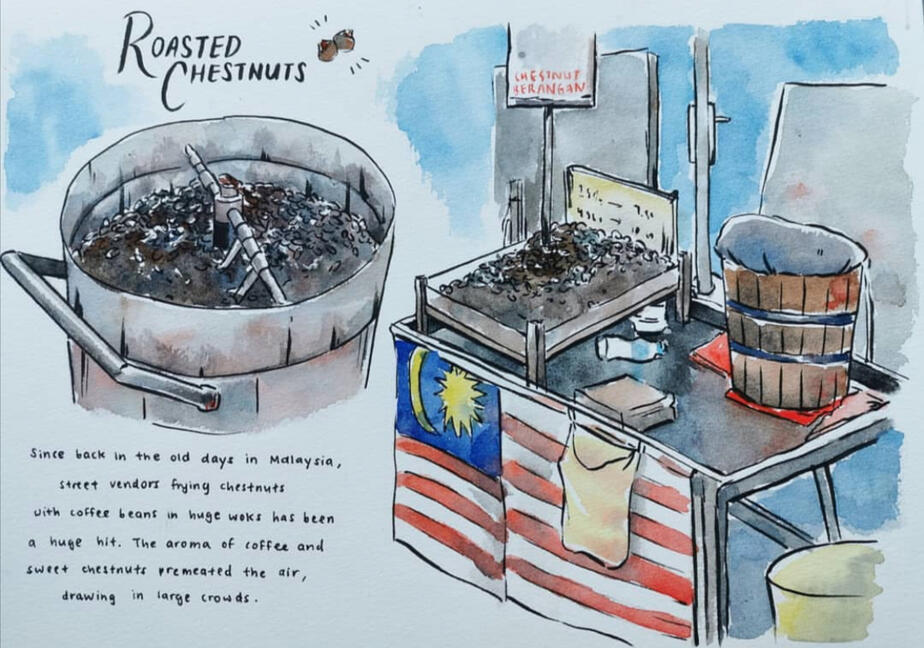 ROASTED
CHESTNUTS
CHESTNUT
BERANGAN
Since back in the old days in Malaysia,
street vendors frying chestnuts
with coffee beans in huge woks has been
a huge hit. The aroma of coffee and
sweet chestnuts premeated the air,
drawing in large crowds.